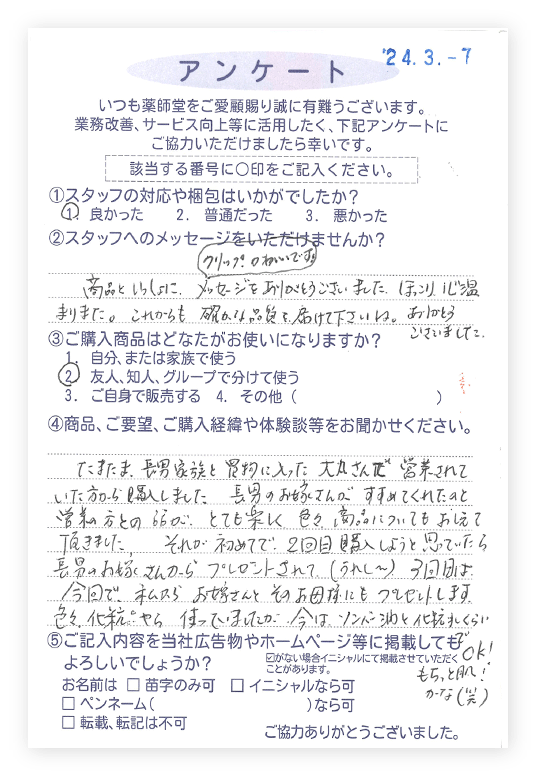 '24.3.-7
アンケート
いつも薬師堂をご愛顧賜り誠に有難うございます。
業務改善、サービス向上等に活用したく、下記アンケートに
ご協力いただけましたら幸いです。
該当する番号に○印をご記入ください。
①スタッフの対応や梱包はいかがでしたか?
1. 良かった 2. 普通だった 3. 悪かった
②スタッフへのメッセージをいただけませんか?
クリップかわいいです!
商品といっしょに、メッセージをありがとうございました ほっこり心温
まりました。これからも 確かな品質を届けて下さいね。ありがとう
ございました。
③ご購入商品はどなたがお使いになりますか?
1. 自分、または家族で使う
2. 友人、知人、グループで分けて使う
3. ご自身で販売する 4. その他( )
④商品、ご要望、ご購入経緯や体験談等をお聞かせください。
たまたま、長男家族と買物に入った大丸さんで営業されて
いた方から購入しました 長男のお嫁さんが すすめてくれたのと
営業の方との が、とても楽しく 色々商品についてもおしえて
頂きました、 それが初めてで、2回目購入しようと思っていたら
長男のお嫁さんから プレゼントされて、(うれし〜) 3回目は
今回で、私から お嫁さんと そのお母様にも プレゼントします。
色々、化粧 やら 使っていましたが 今は、ソンバー油と化粧水くらい
で
⑤ご記入内容を当社広告物やホームページ等に掲載しても
よろしいでしょうか?
☑がない場合イニシャルにて掲載させていただく
ことがあります。
OK!
もちっと肌!
かーな(笑)
お名前は □ 苗字のみ可 □ イニシャルなら可
□ ペンネーム( )なら可
□ 転載、転記は不可
ご協力ありがとうございました。